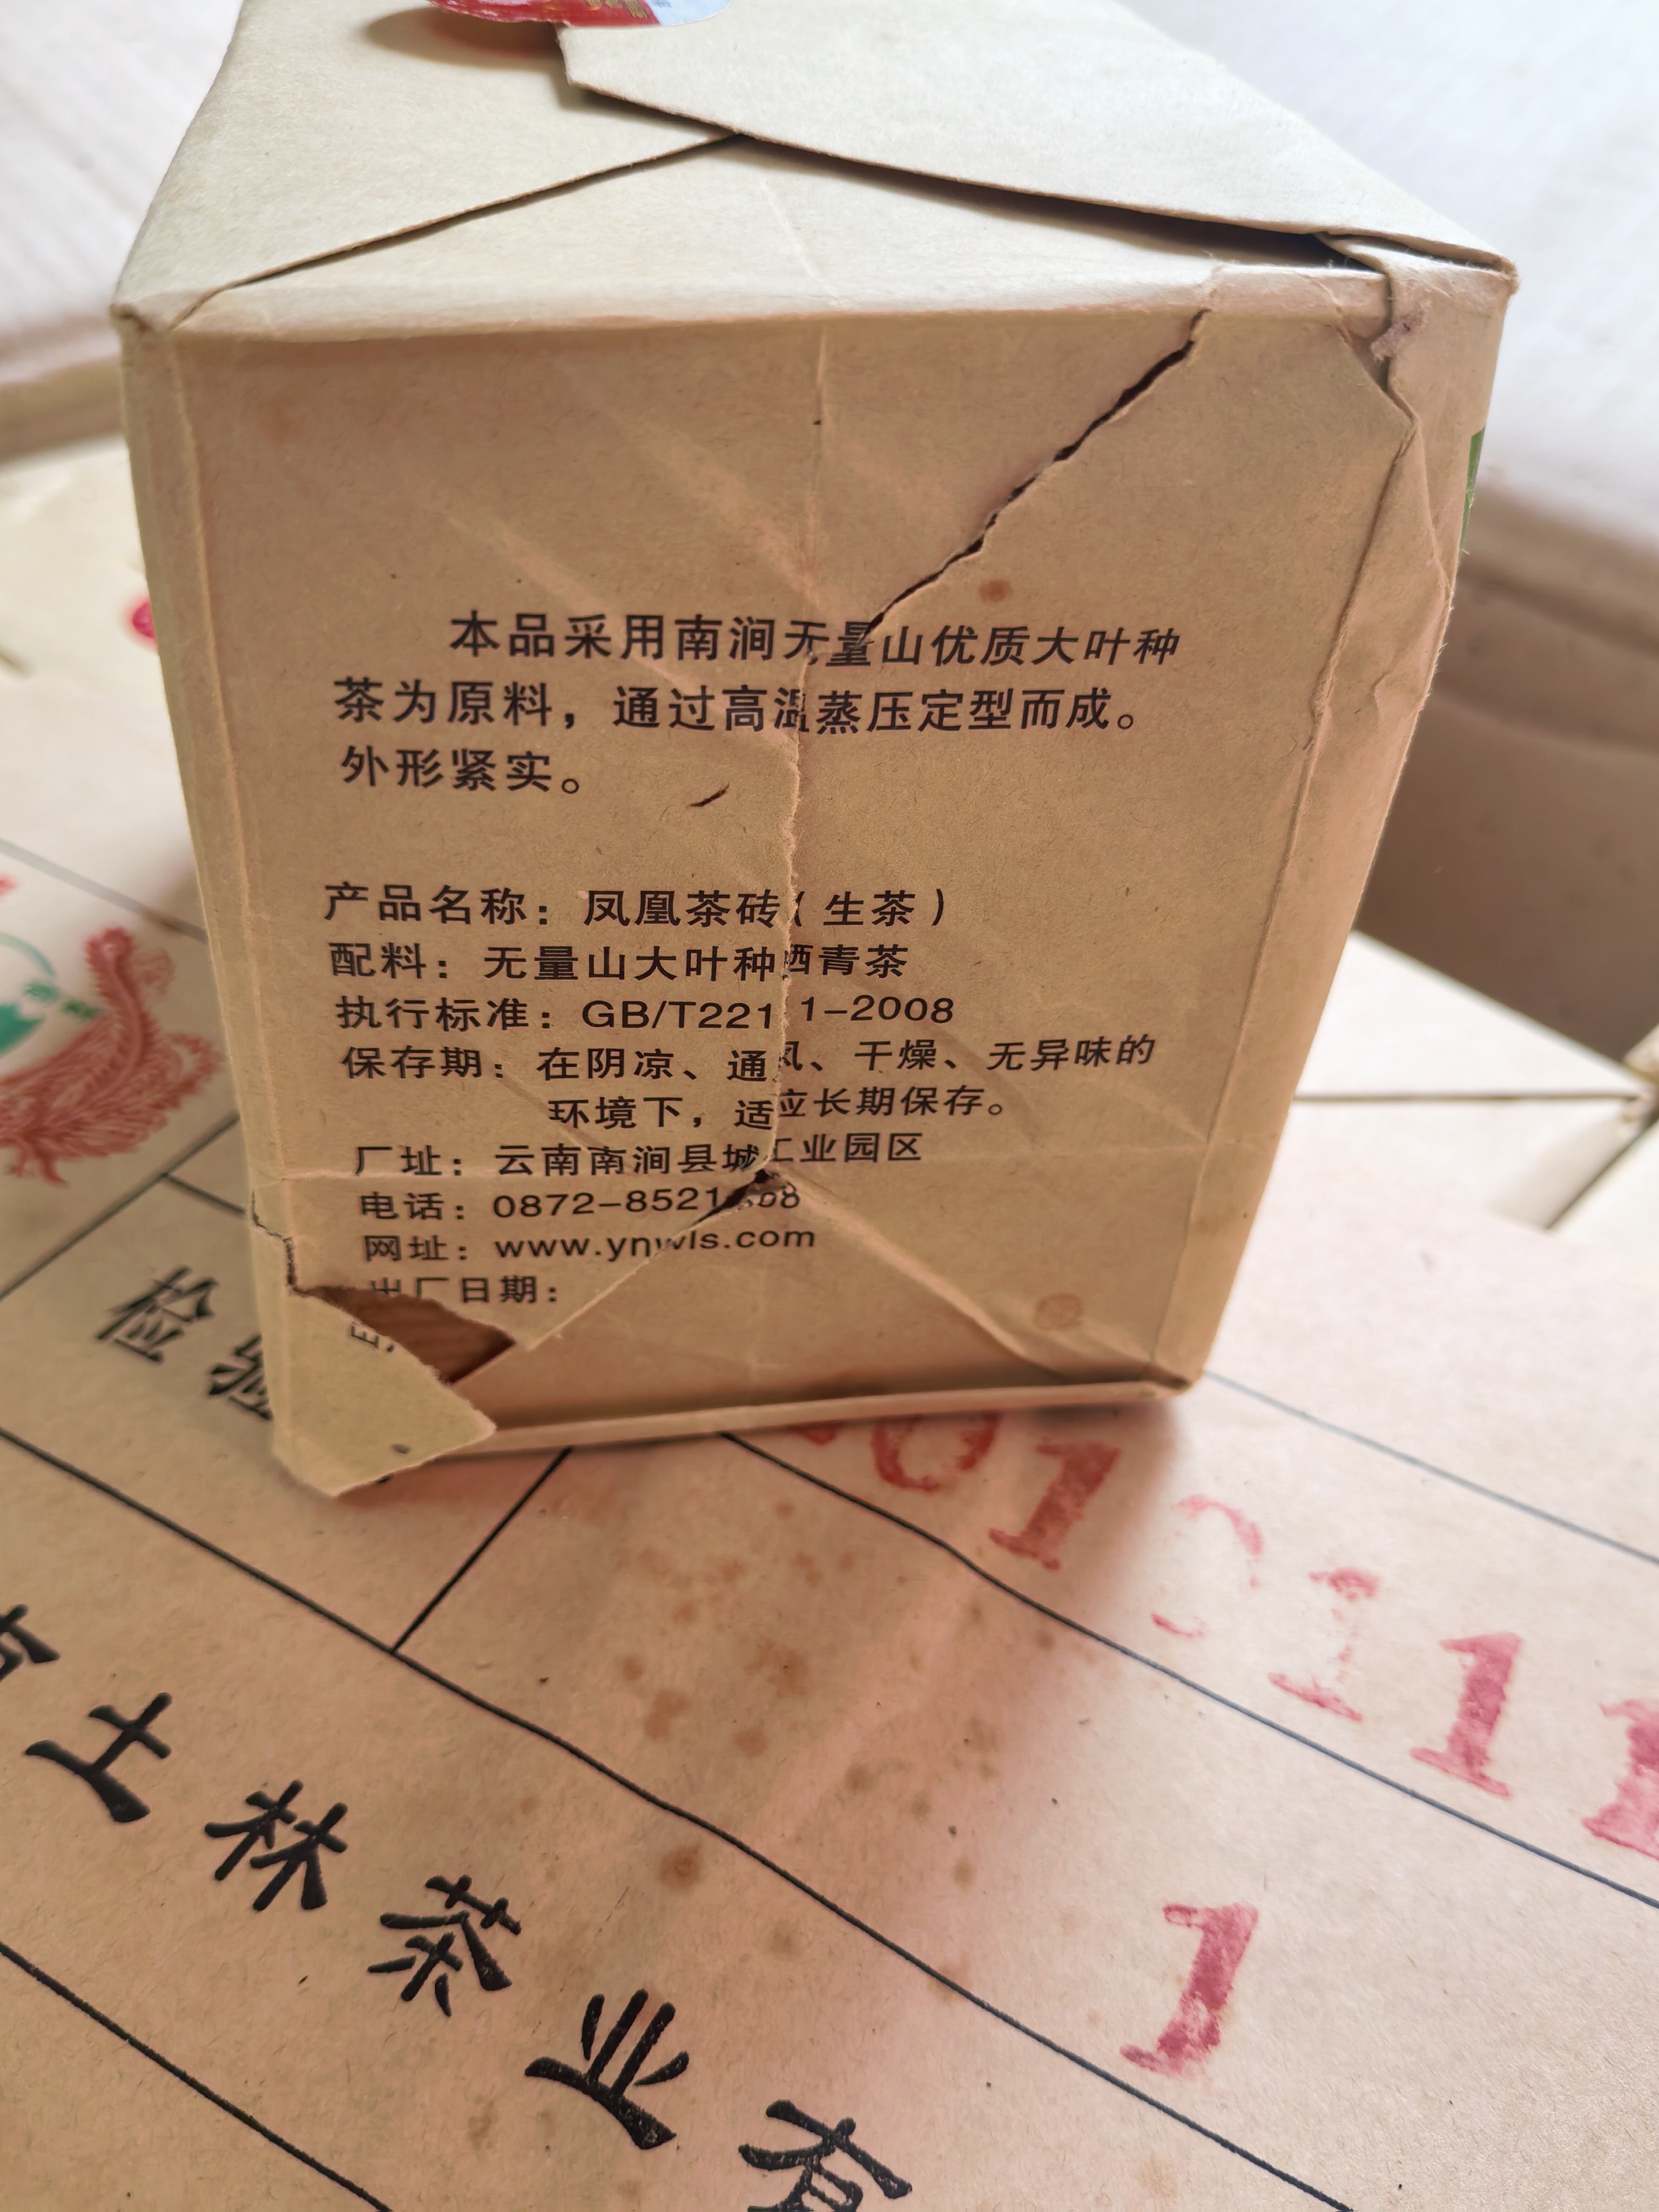 本品采用南涧无量山优质大叶种
茶为原料，通过高温蒸压定型而成。
外形紧实。
产品名称：凤凰茶砖（生茶）
配料：无量山大叶种晒青茶
执行标准：GB/T221 1-2008
保存期：在阴凉、通风、干燥、无异味的
环境下，适应长期保存。
厂址：云南南涧县城工业园区
电话：0872-8521
网址：www.ynwls.com
出厂日期：
检验
01 111
1
土林茶业有